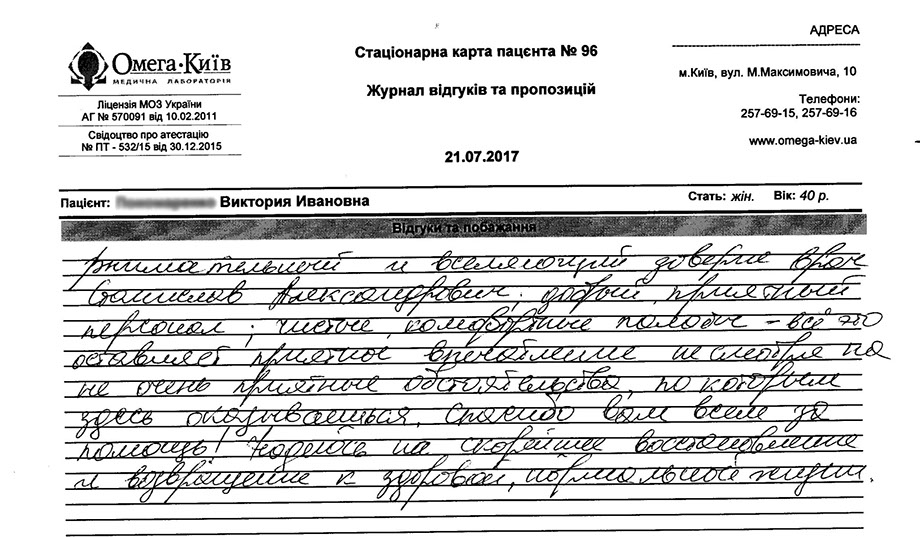 Омега·Київ
МЕДИЧНА ЛАБОРАТОРІЯ
Ліцензія МОЗ України
АГ № 570091 від 10.02.2011
Свідоцтво про атестацію
№ ПТ - 532/15 від 30.12.2015
Стаціонарна карта пацєнта № 96
Журнал відгуків та пропозицій
21.07.2017
АДРЕСА
м.Київ, вул. М.Максимовича, 10
Телефони:
257-69-15, 257-69-16
www.omega-kiev.ua
Пацієнт: Виктория Ивановна
Стать: жін. Вік: 40 р.
Відгуки та побажання
Внимательный и вселяющий доверие врач
Станислав Александрович, добрый, приятный
персонал; чистые, комфортные палаты – всё это
оставляет приятное впечатление несмотря на
не очень приятные обстоятельства, по которым
здесь оказываешься. Спасибо вам всем за
помощь! Надеюсь на скорейшее восстановление
и возвращение к здоровой, нормальной жизни.